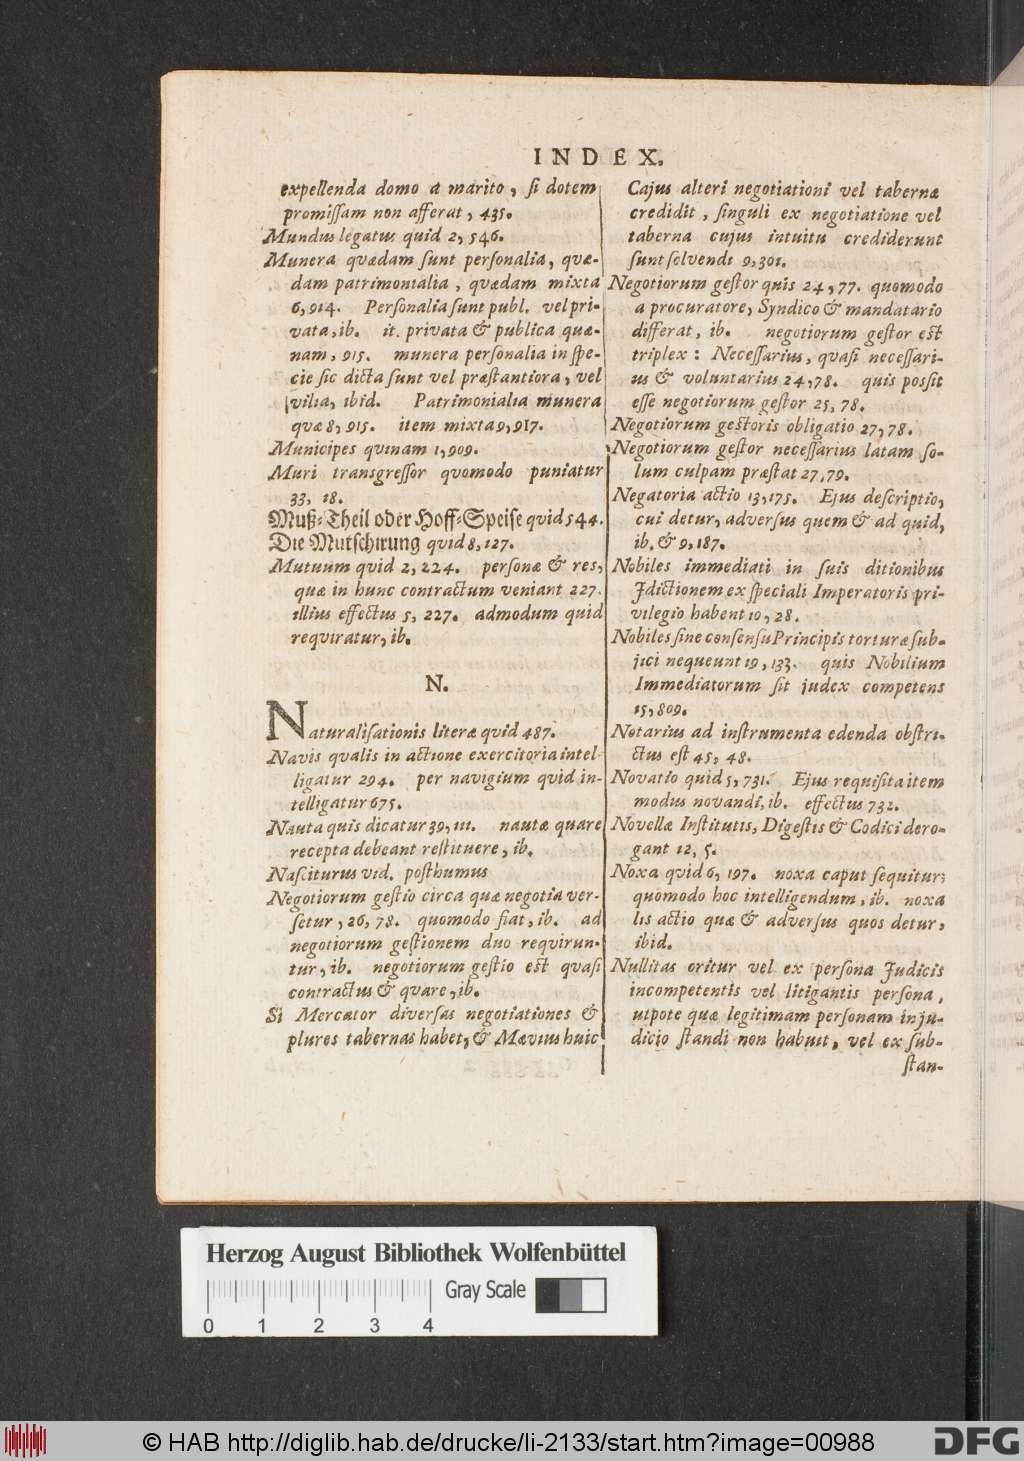 INDEX.
expellenda domo a marito, ſi dotem
promiſſam non afferat, 435.
Mundus legatus quid 2, 546.
Munera quædam ſunt perſonalia, quæ-
dam patrimonialia, quædam mixta
6, 914. Perſonalia ſunt publ. vel pri-
vata, ib. it. privata & publica quæ-
nam, 915. munera perſonalia in ſpe-
cie ſic dicta ſunt vel præſtantiora, vel
vilia, ibid. Patrimonialia munera
quæ 8, 915. item mixta 9, 917.
Municipes quinam 1, 909.
Muri transgreſſor quomodo puniatur
33, 18.
Muß-Theil oder Hoff-Speiſe qvid 544.
Die Mutſchirung qvid 8, 127.
Mutuum qvid 2, 224. perſonæ & res,
quæ in hunc contractum veniant 227.
illius effectus 5, 227. admodum quid
reqviratur, ib.
N.
Naturaliſationis literæ qvid 487.
Navis qvalis in actione exercitoria intel-
ligatur 294. per navigium qvid in-
telligatur 675.
Nauta quis dicatur 39, 111. nautæ quare
recepta debeant reſtituere, ib.
Naſciturus vid. poſthumus
Negotiorum geſtio circa quæ negotia ver-
ſetur, 26, 78. quomodo fiat, ib. ad
negotiorum geſtionem duo reqvirun-
tur, ib. negotiorum geſtio eſt quaſi
contractus & qvare, ib.
Si Mercator diverſas negotiationes &
plures tabernas habet, & Mævius huic
Cajus alteri negotiationi vel tabernæ
credidit, ſinguli ex negotiatione vel
taberna cujus intuitu crediderunt
ſunt ſolvendi 9, 301.
Negotiorum geſtor quis 24, 77. quomodo
a procuratore, Syndico & mandatario
differat, ib. negotiorum geſtor eſt
triplex: Neceſſarius, quaſi neceſſari-
us & voluntarius 24, 78. quis poſſit
eſſe negotiorum geſtor 25, 78.
Negotiorum geſtoris obligatio 27, 78.
Negotiorum geſtor neceſſarius latam ſo-
lum culpam præſtat 27, 79.
Negatoria actio 13, 175. Ejus deſcriptio,
cui detur, adverſus quem & ad quid,
ib. & 9, 187.
Nobiles immediati in ſuis ditionibus
Jdictionem ex ſpeciali Imperatoris pri-
vilegio habent 10, 28.
Nobiles ſine conſenſu Principis torturæ ſub-
jici nequeunt 19, 133. quis Nobilium
Immediatorum ſit judex competens
15, 809.
Notarius ad inſtrumenta edenda obſtri-
ctus eſt 45, 48.
Novatio quid 5, 731. Ejus requiſita item
modus novandi, ib. effectus 732.
Novellæ Inſtitutis, Digeſtis & Codici dero-
gant 12, 5.
Noxa qvid 6, 197. noxa caput ſequitur:
quomodo hoc intelligendum, ib. noxa
lis actio quæ & adverſus quos detur,
ibid.
Nullitas oritur vel ex perſona Judicis
incompetentis vel litigantis perſona,
utpote quæ legitimam perſonam in ju-
dicio ſtandi non habuit, vel ex ſub-
ſtan-
Herzog August Bibliothek Wolfenbüttel
Gray Scale
0 1 2 3 4
© HAB http://diglib.hab.de/drucke/li-2133/start.htm?image=00988
DFG